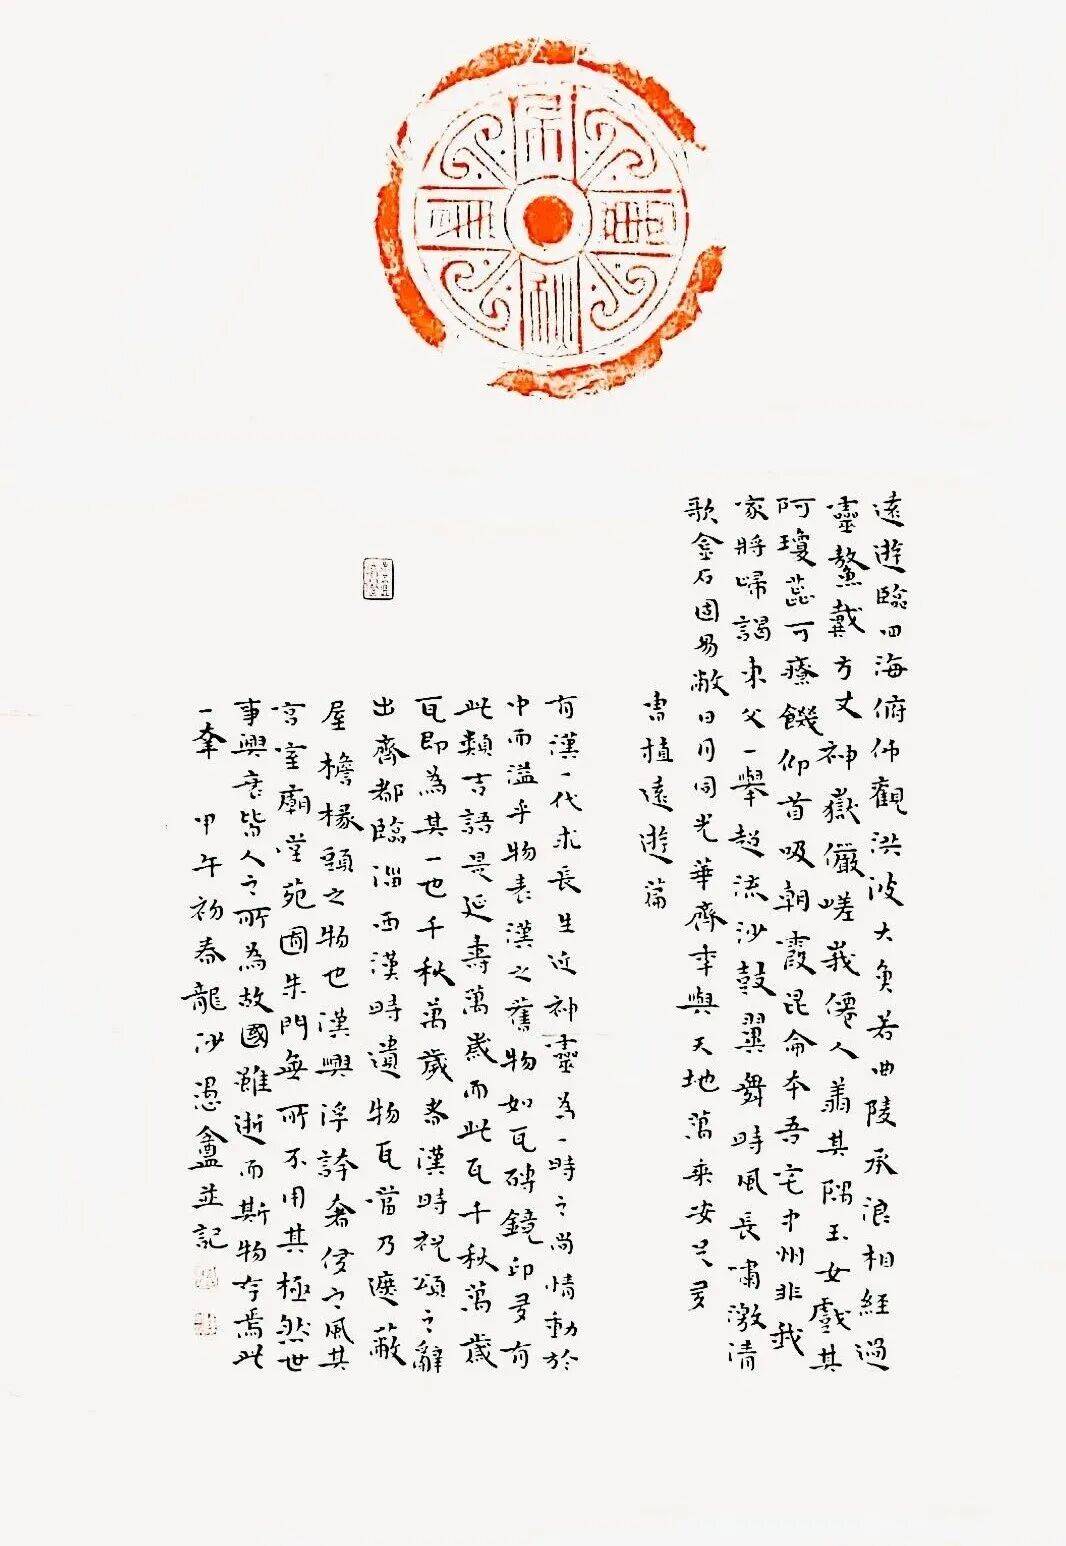 遠遊臨四海俯仰觀洪波大魚若曲陵承浪相經過
靈鰲戴方丈神嶽儼嵯峩僊人翔其隅玉女戲其
阿瓊蕊可療饑仰首吸朝霞昆侖本吾宅中州非我
家將歸謁東父一舉超流沙鼓翼舞時風長嘯激清
歌金石固易敝日月同光華齊年與天地萬乘安足多
曹植遠遊篇
有漢一代求長生近神靈為一時之尚情動於
中而溢乎物表漢之舊物如瓦磚鏡印多有
此類吉語是延壽萬歲而此瓦千秋萬歲
瓦即為其一也千秋萬歲者漢時祝頌之辭
出齊都臨淄西漢時遺物瓦當乃遮蔽
屋檐椽頭之物也漢興浮誇奢侈之風其
宮室廟堂苑囿朱門無所不用其極然世
事興衰皆人之所為故國雖逝而斯物存焉此
一 甲午初春龍沙憑盦並記